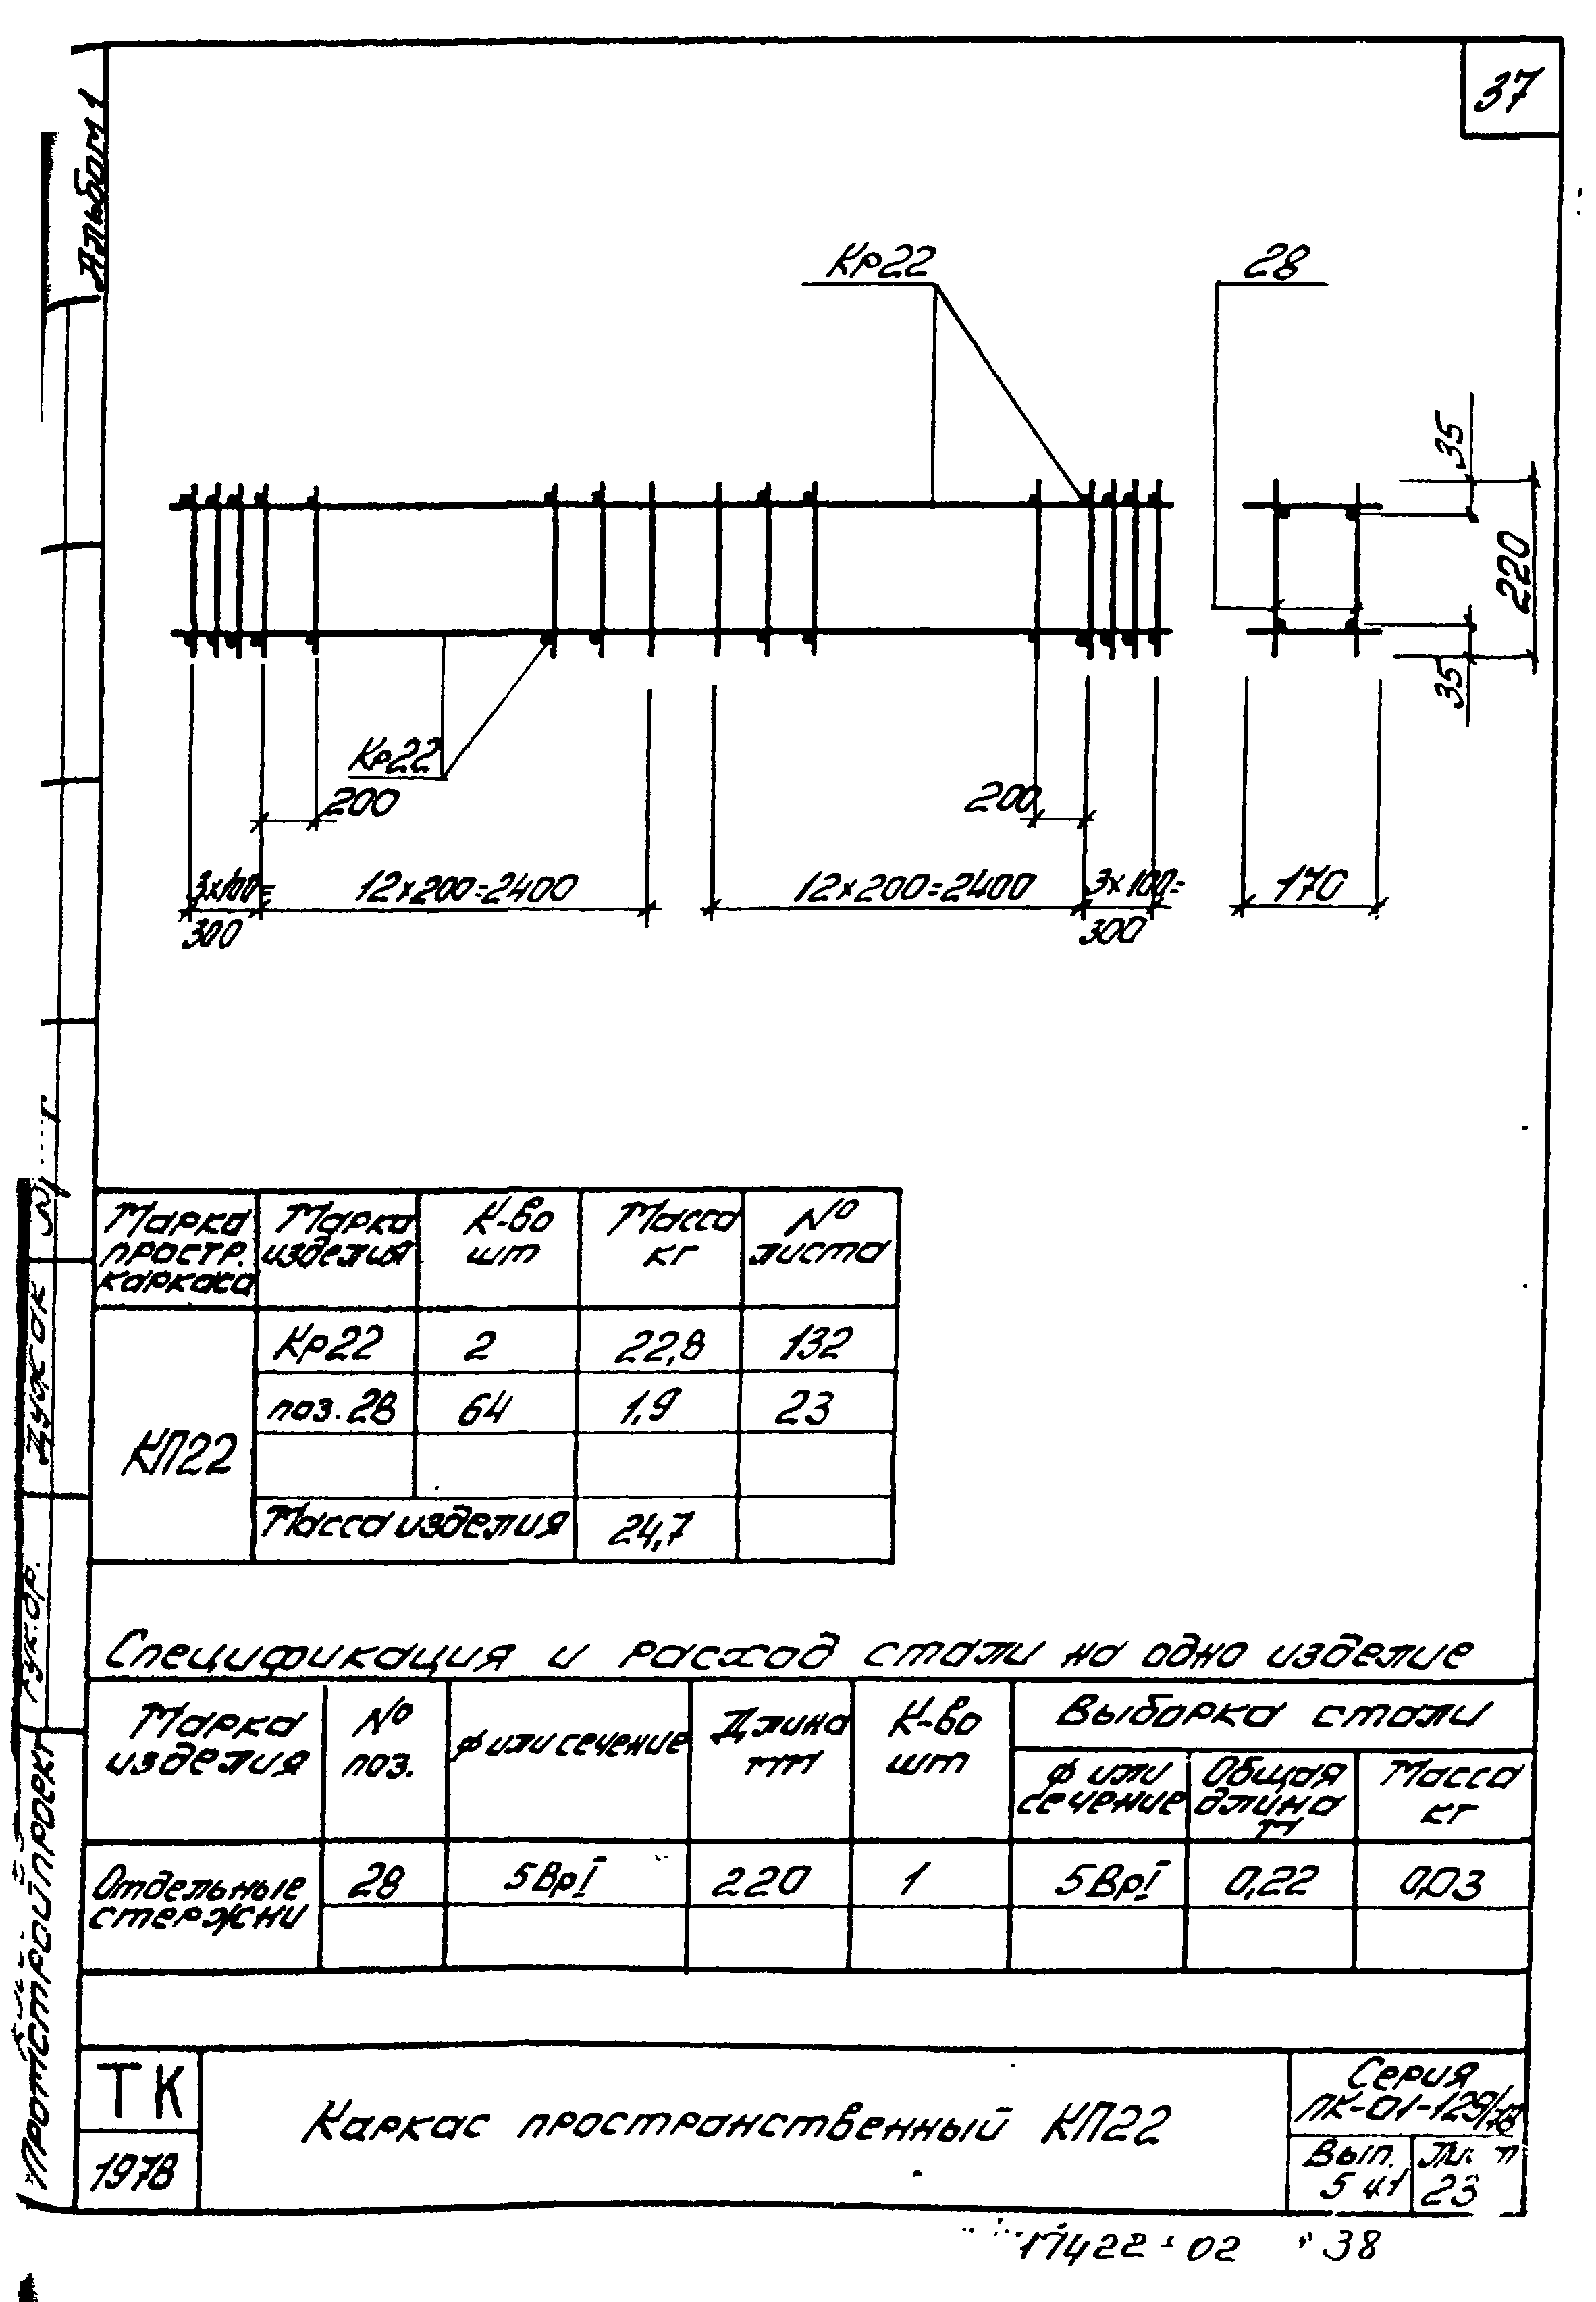 37
Альбом 1
Кр22
28
35
220
35
Кр22
200
200
3х100=
300
12х200=2400
12х200=2400
3х100=
300
170
Марка простр. каркаса
Марка изделия
К-во шт
Масса кг
№ листа
КП22
Кр22 2 22,8 132
поз. 28 64 1,9 23
Масса изделия 24,7
Спецификация и расход стали на одно изделие
Марка изделия
№ поз.
ф или сечение
Длина мм
К-во шт
Выборка стали
ф или сечение
Общая длина м
Масса кг
Отдельные стержни
28 5ВрI 220 1 5ВрI 0,22 0,03
Рук.бр. Дужак
Промстройпроект
ТК
1978
Каркас пространственный КП22
Серия
ПК-01-129/78
Вып.
5 ч1
23
17422-02 38